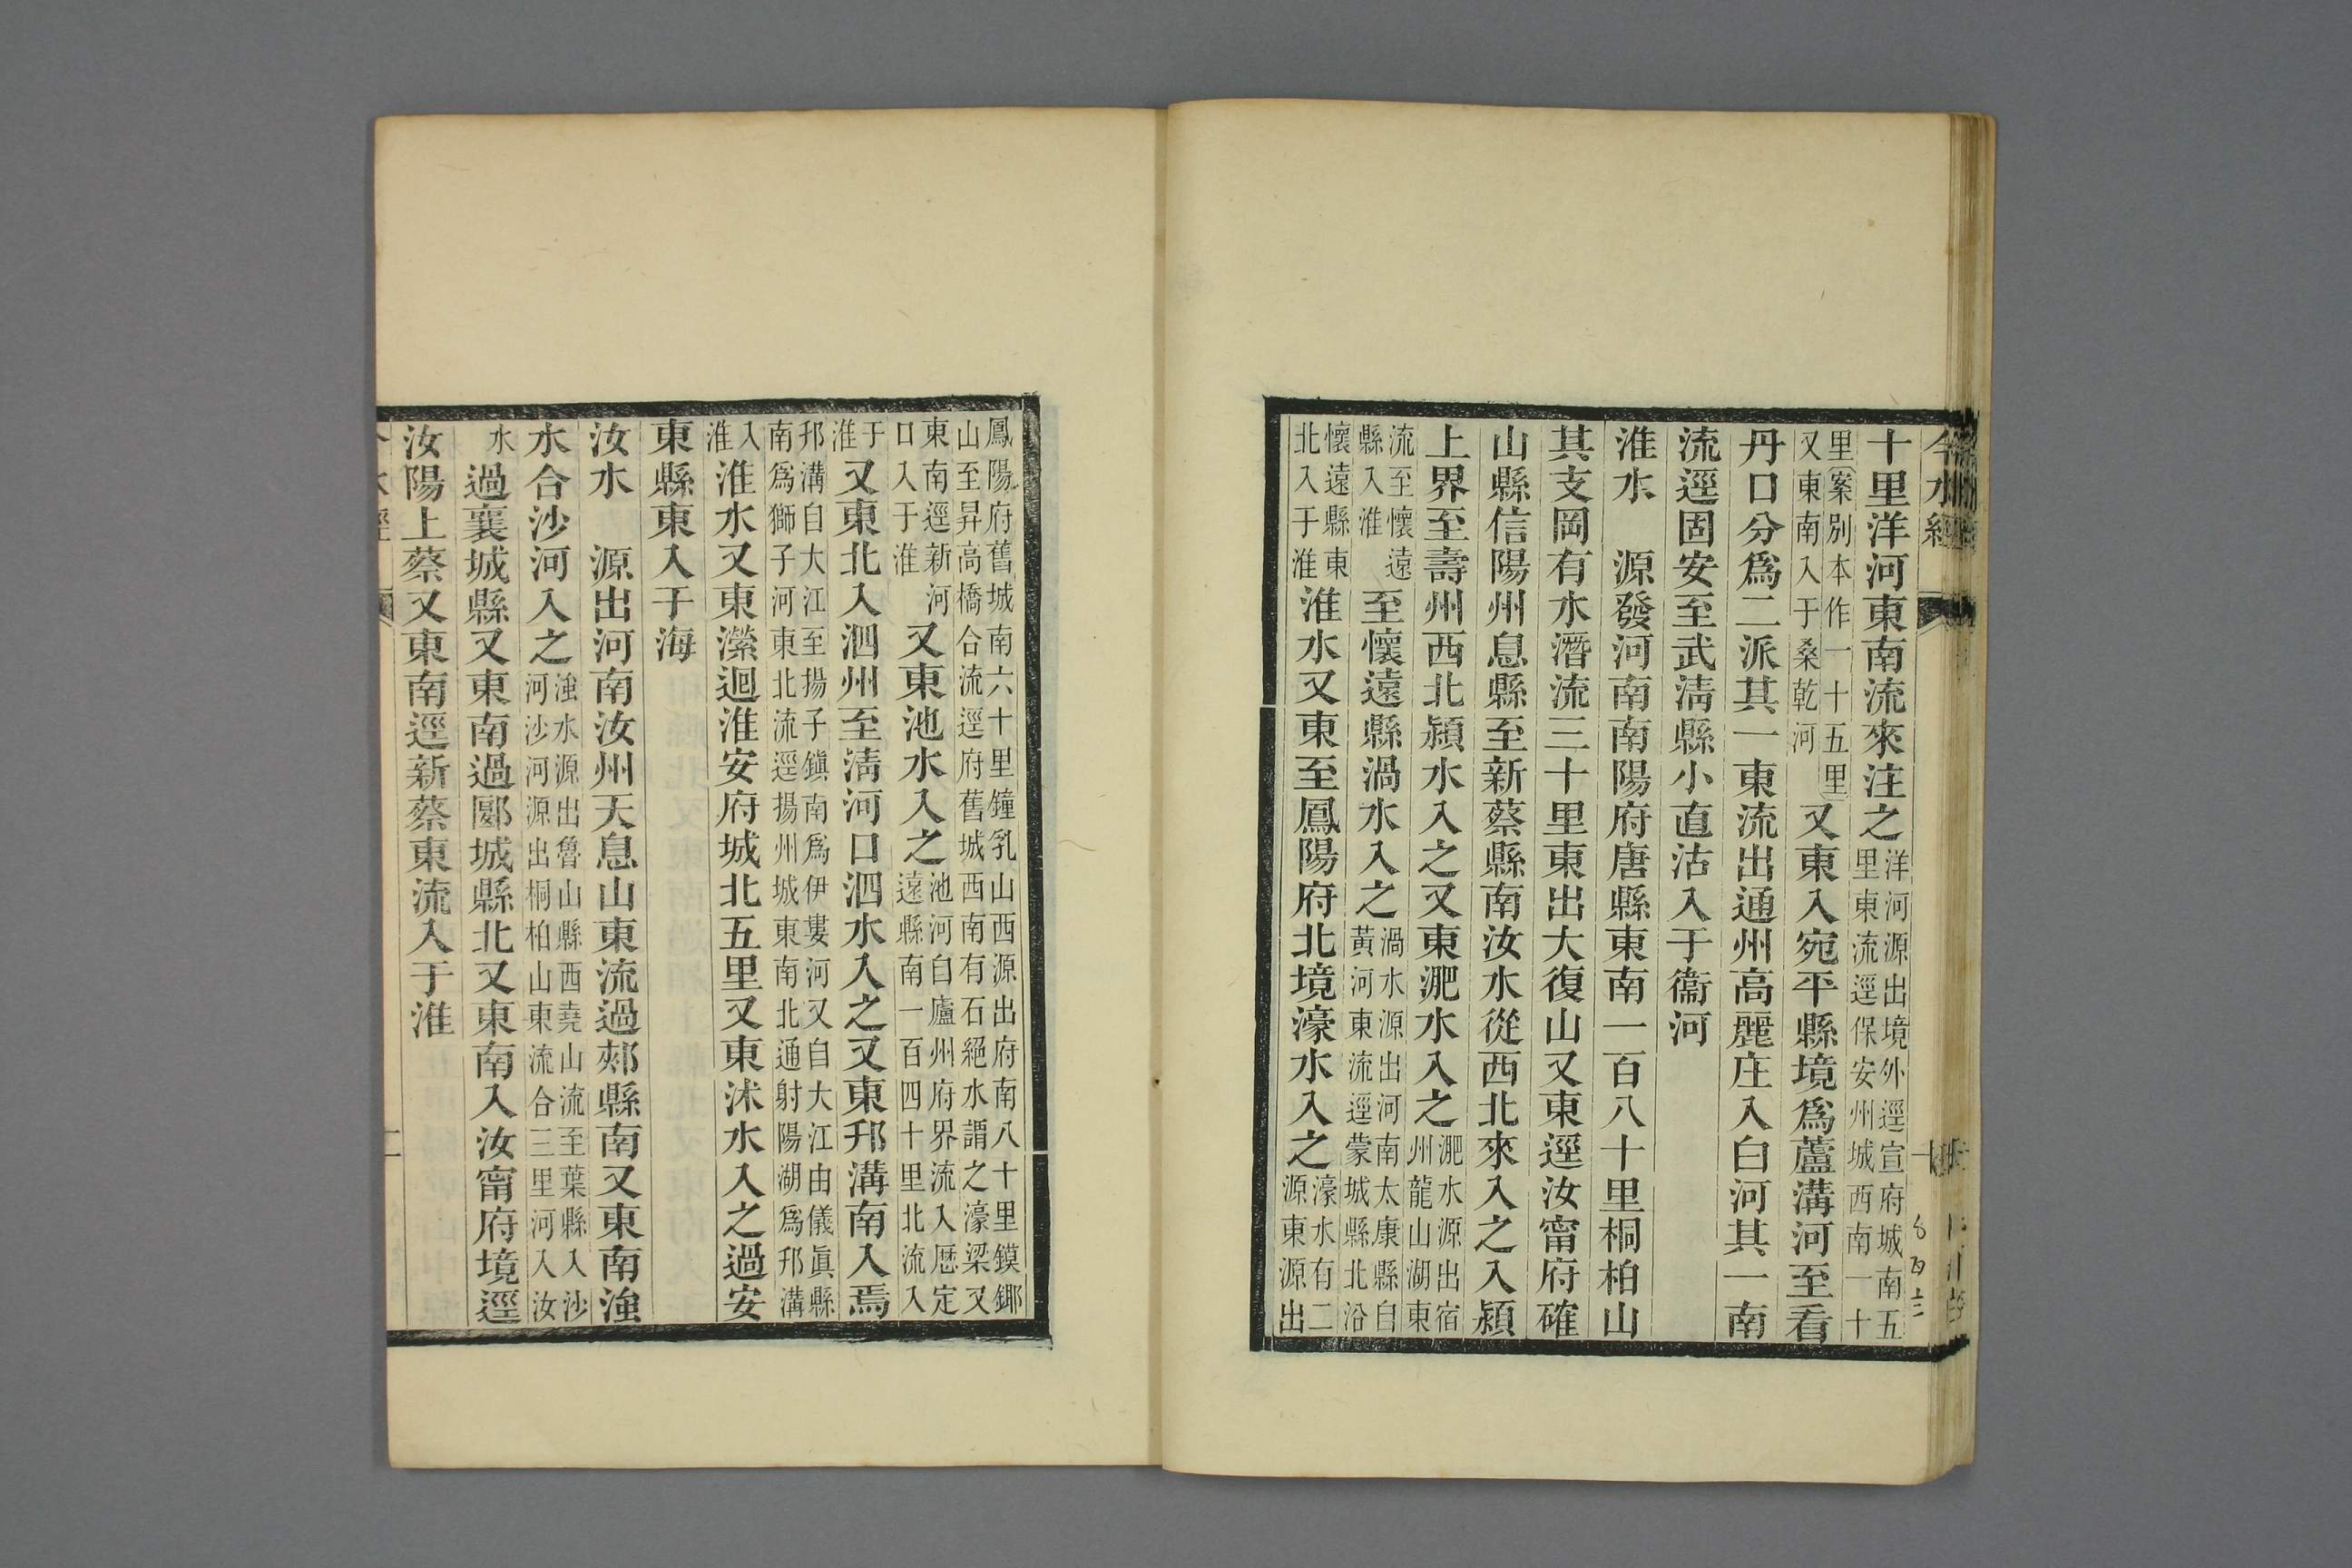 今水經
十
十里洋河東南流來注之洋河源出境外逕宣府城南五里東流逕保安州城西南一十
里案別本作一十五里又東南入于桑乾河又東入宛平縣境爲蘆溝河至看
丹口分爲二派其一東流出通州高麗庄入白河其一南
流逕固安至武淸縣小直沽入于衞河
淮水　源發河南南陽府唐縣東南一百八十里桐柏山
其支岡有水潛流三十里東出大復山又東逕汝甯府確
山縣信陽州息縣至新蔡縣南汝水從西北來入之入潁
上界至壽州西北潁水入之又東淝水入之淝水源出宿州龍山湖東
流至懷遠縣入淮至懷遠縣渦水入之渦水源出河南太康縣自黃河東流逕蒙城縣北浴
懷遠縣東北入于淮淮水又東至鳳陽府北境濠水入之濠水有二源東源出
鳳陽府舊城南六十里鐘乳山西源出府南八十里鏌鎁山至昇高橋合流逕府舊城西南有石絕水謂之濠梁又
東南逕新河口入于淮又東池水入之池河自廬州府界流入厯定遠縣南一百四十里北流入
于淮又東北入泗州至淸河口泗水入之又東邗溝南入焉
邗溝自大江至揚子鎭南爲伊婁河又自大江由儀眞縣南爲獅子河東北流逕揚州城東南北通射陽湖爲邗溝
入淮淮水又東瀠迴淮安府城北五里又東沭水入之過安
東縣東入于海
汝水　源出河南汝州天息山東流過郟縣南又東南滍
水合沙河入之滍水源出魯山縣西堯山流至葉縣入沙河沙河源出桐柏山東流合三里河入汝
水過襄城縣又東南過郾城縣北又東南入汝甯府境逕
汝陽上蔡又東南逕新蔡東流入于淮